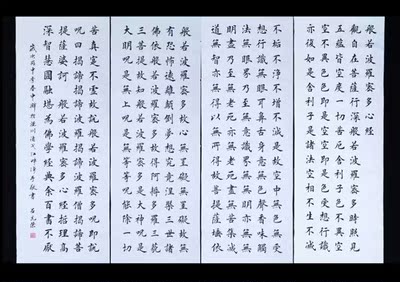 般若波羅蜜多心經
觀自在菩薩行深般若波羅蜜多時照見
五蘊皆空度一切苦厄舍利子色不異空
空不異色色即是空空即是色受想行識
亦復如是舍利子是諸法空相不生不滅
不垢不淨不增不減是故空中無色無受
想行識無眼耳鼻舌身意無色聲香味觸
法無眼界乃至無意識界無無明亦無無
明盡乃至無老死亦無老死盡無苦集滅
道無智亦無得以無所得故菩提薩埵依
般若波羅蜜多故心無罣礙無罣礙故無
有恐怖遠離顛倒夢想究竟涅槃三世諸
佛依般若波羅蜜多故得阿耨多羅三藐
三菩提故知般若波羅蜜多是大神呪是
大明呪是無上呪是無等等呪能除一切
苦真實不虛故說般若波羅蜜多呪即說
呪曰揭諦揭諦波羅揭諦波羅僧揭諦菩
提薩婆訶 般若波羅蜜多心經哲理高
深智慧圓融堪為佛學經典余百書不厭
歲次丙申